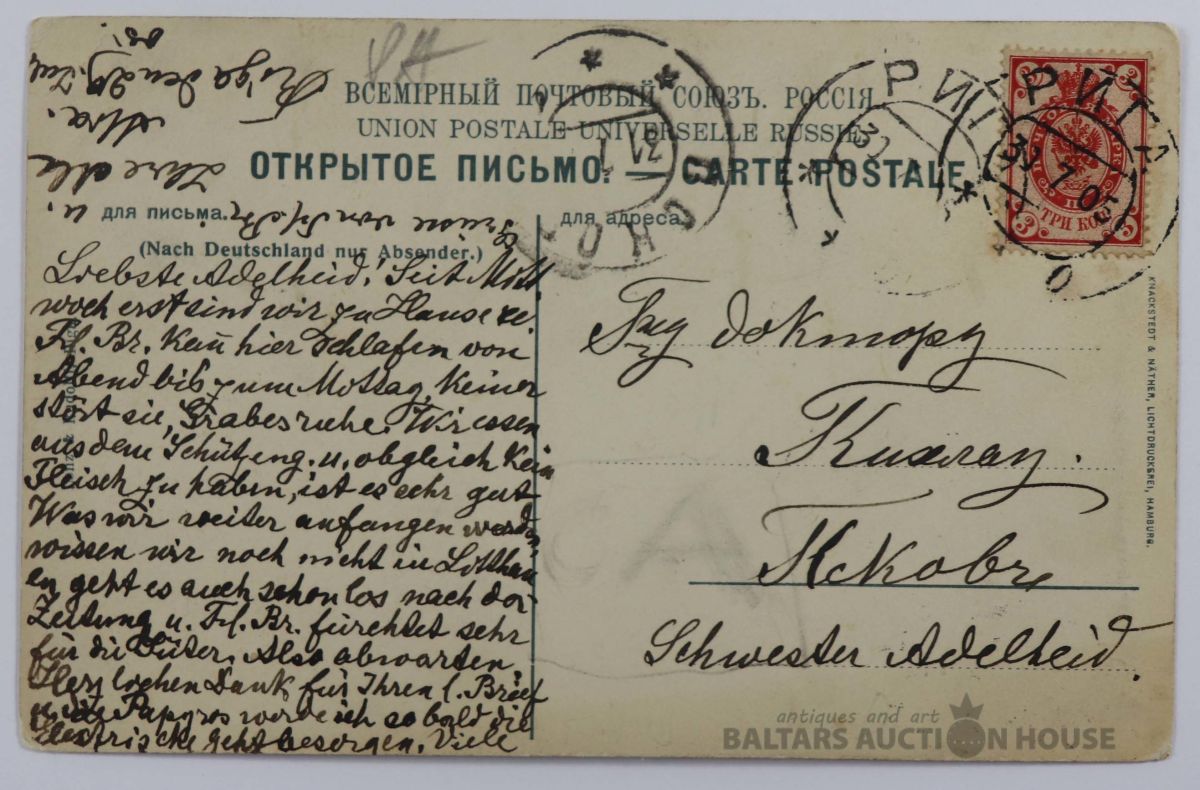 ВСЕМІРНЫЙ ПОЧТОВЫЙ СОЮЗЪ. РОССІЯ
UNION POSTALE UNIVERSELLE RUSSIE.
ОТКРЫТОЕ ПИСЬМО. — CARTE POSTALE
для письма.
(Nach Deutschland nur Absender.)
Liebste Adelheid! Seit Mitt
woch erst sind wir zu Hause
Fl. Br. kann hier schlafen von
Abend bis zum Mottag, keiner
stört sie, Grabesruhe. Wir essen
aus dem Schützeng. u. obgleich kein
Fleisch zu haben, ist es sehr gut
Was wir weiter anfangen werden,
wissen wir noch nicht in
geht es auch schon los nach der
Zeitung u. Fl. Br. fürchtet sehr
für die Güter. Also abwarten
Herzlichen Dank für Ihren l. Brief
u. die Papyros werde ich so bald die
Electrische geht besorgen. Viele
Grüsse von
u.
Ihre alte
Riga den 29. Jul
05.
для адреса
РИГА
31
РИГА
31 7 05
ТРИ КОП
3 3
доктору
Schwester Adelheid.
KNACKSTEDT & NÄTHER, LICHTDRUCKEREI, HAMBURG.
antiques and art
BALTARS AUCTION HOUSE